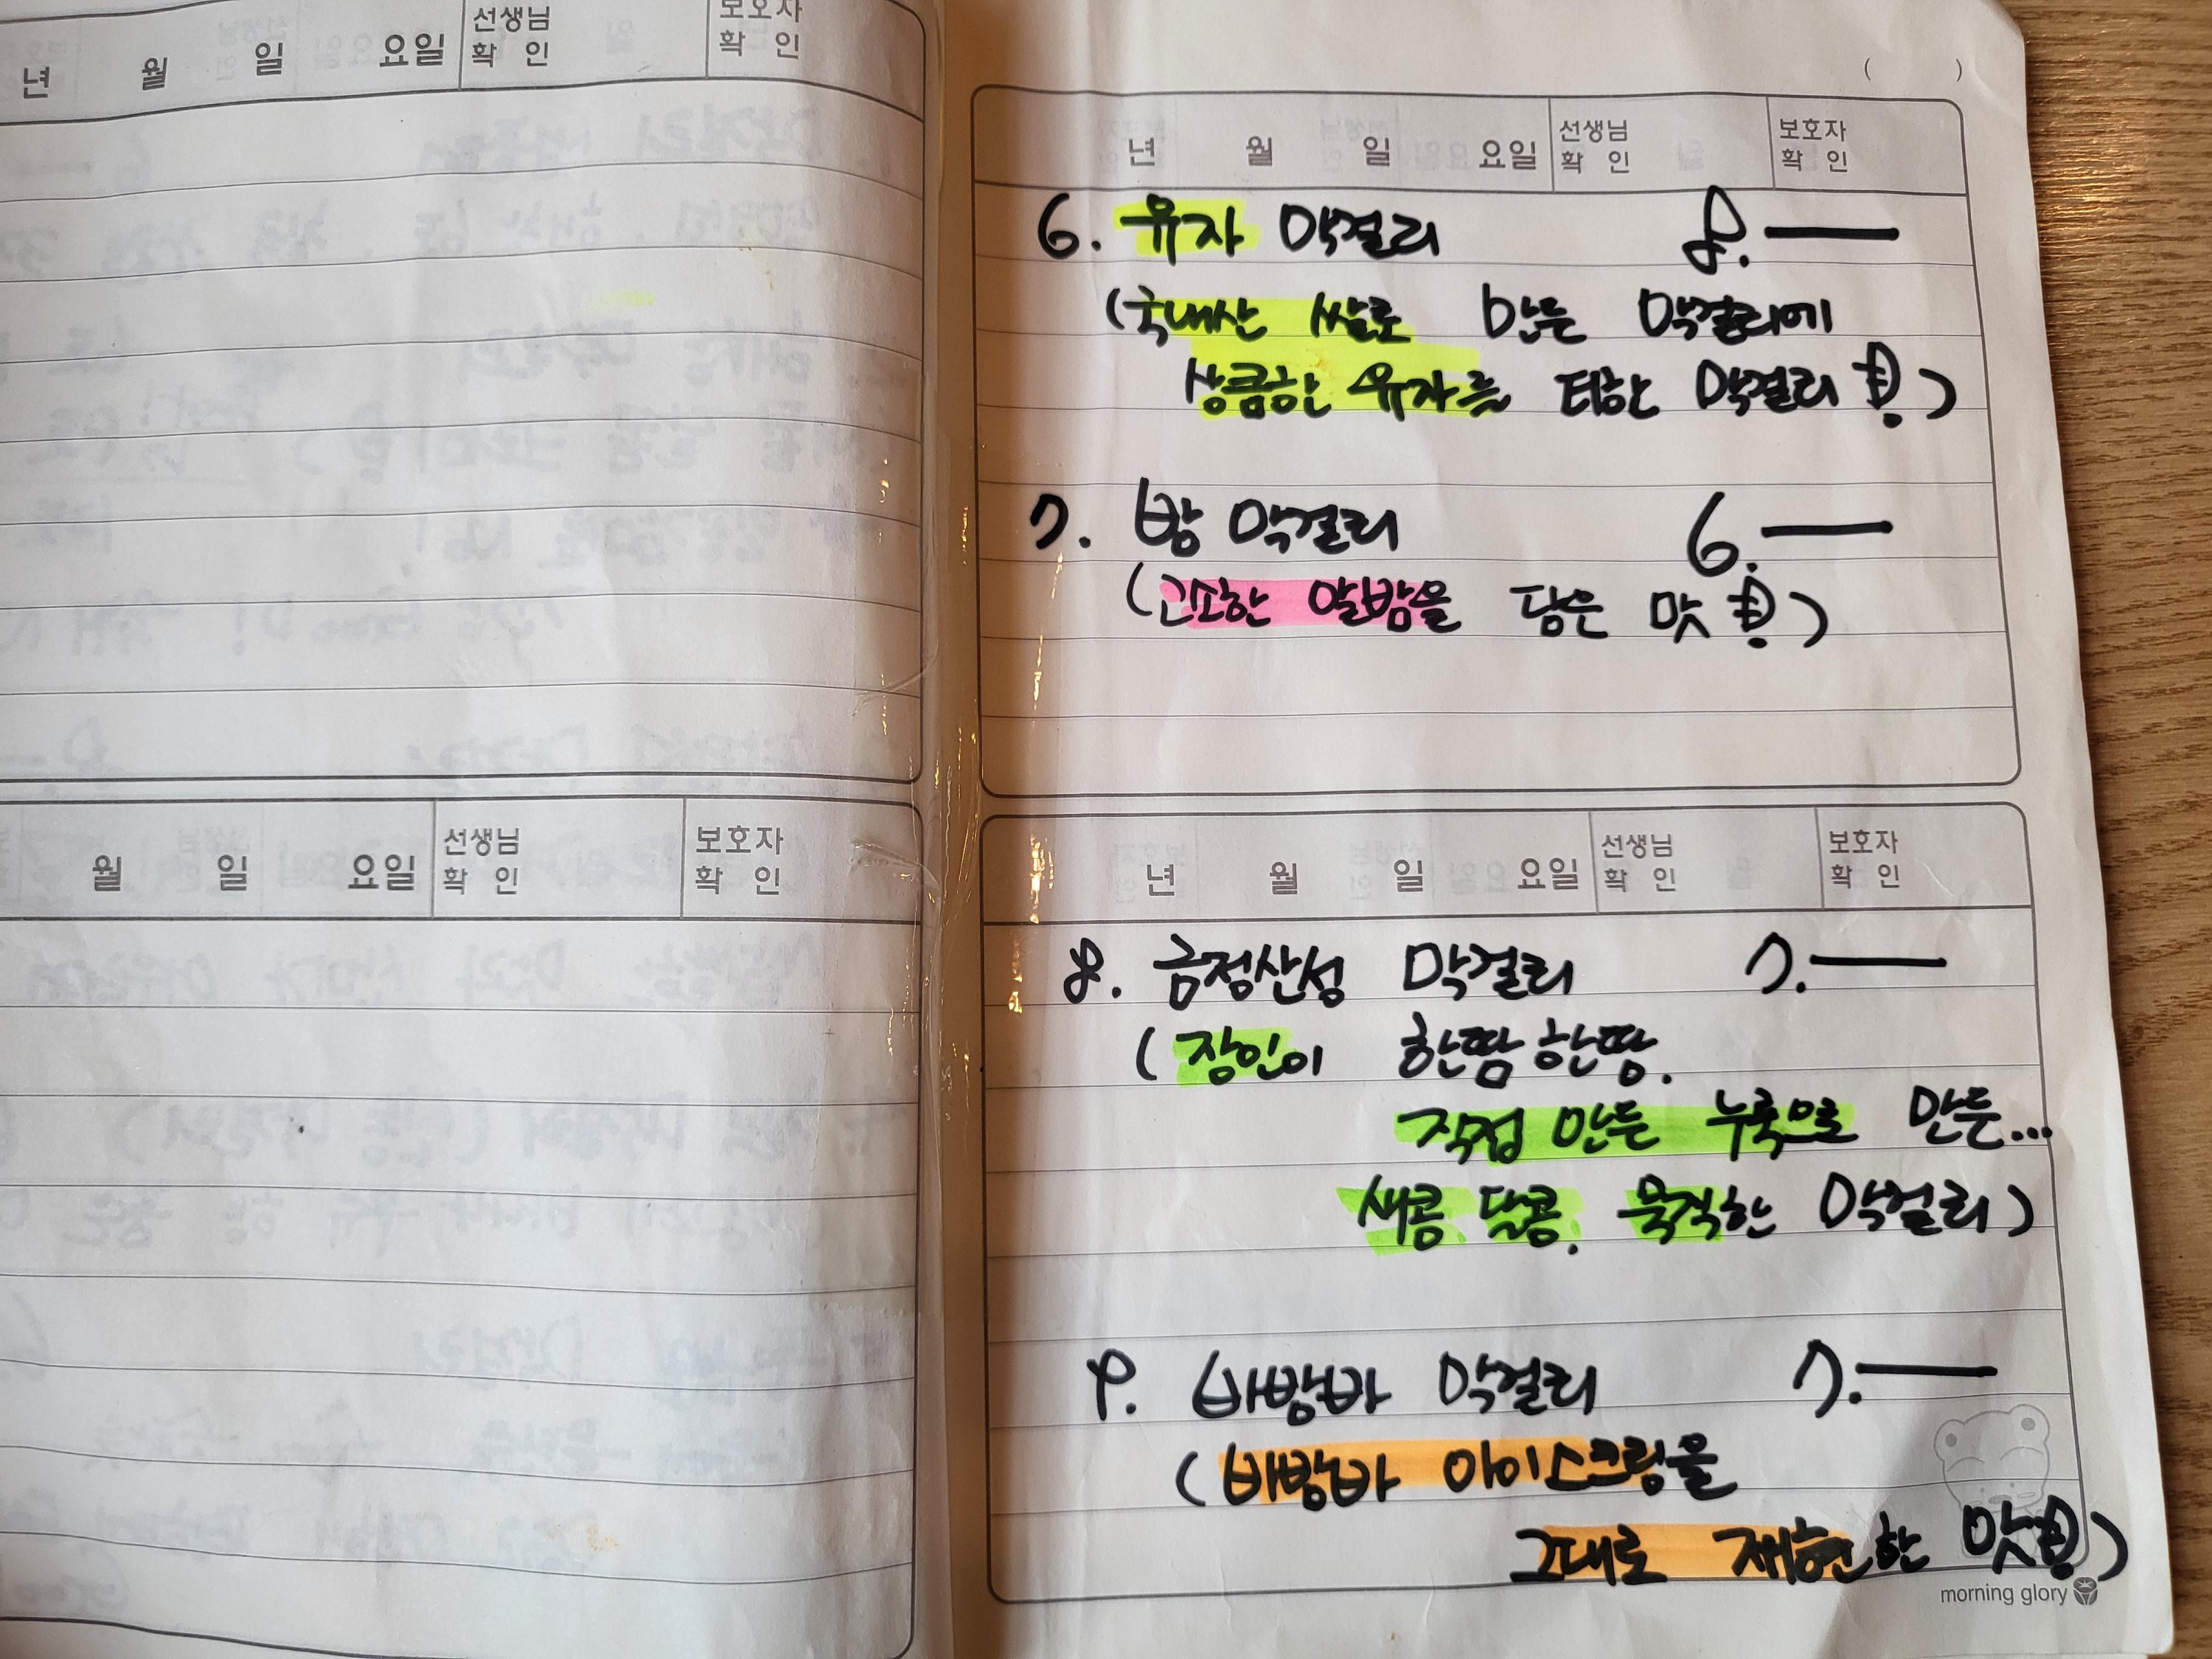 년 월 일 요일 선생님 확 인 보호자 확 인
월 일 요일 선생님 확 인 보호자 확 인
( )
년 월 일 요일 선생님 확 인 보호자 확 인
6. 유자 막걸리 8.—
(국내산 쌀로 만든 막걸리에
상큼한 유자를 터한 막걸리!)
7. 밤 막걸리 6.—
(고소한 알밤을 담은 맛!)
년 월 일 요일 선생님 확 인 보호자 확 인
8. 금정산성 막걸리 7.—
(장인이 한땀한땅.
직접 만든 누룩으로 만든...
새콤 달콤. 묵직한 막걸리)
9. 바밤바 막걸리 7.—
(바밤바 아이스크림을
그대로 재현한 맛!)
morning glory